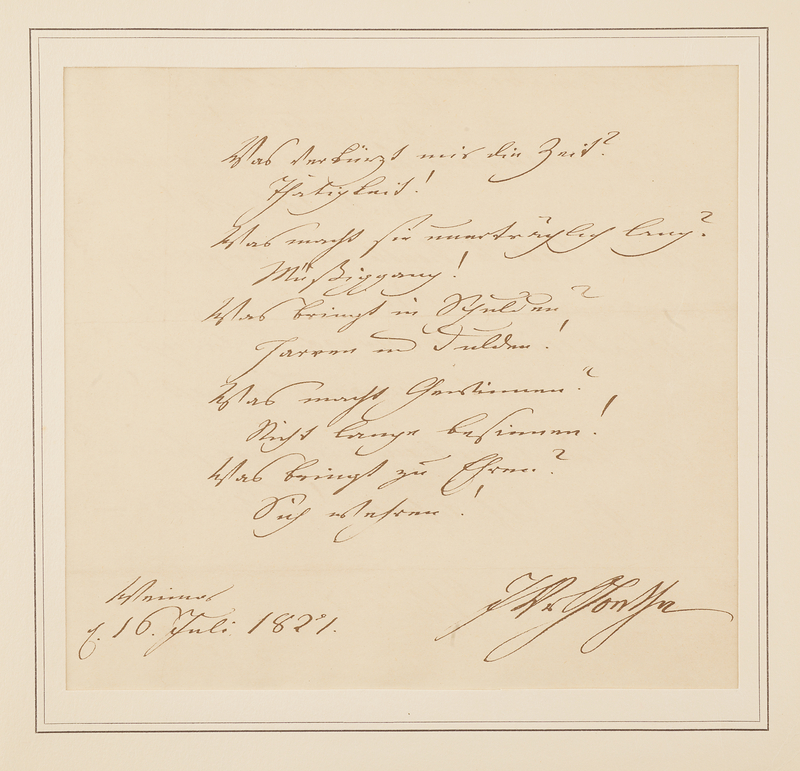 Was verkürzt mir die Zeit?
Thätigkeit!
Was macht sie unerträglich lang?
Müßiggang!
Was bringt in Schulden?
Harren und Dulden!
Was macht Gewinnen?
Nicht lange besinnen!
Was bringt zu Ehren?
Sich wehren!
Weimar
d. 16. Juli 1821.
JWvGoethe